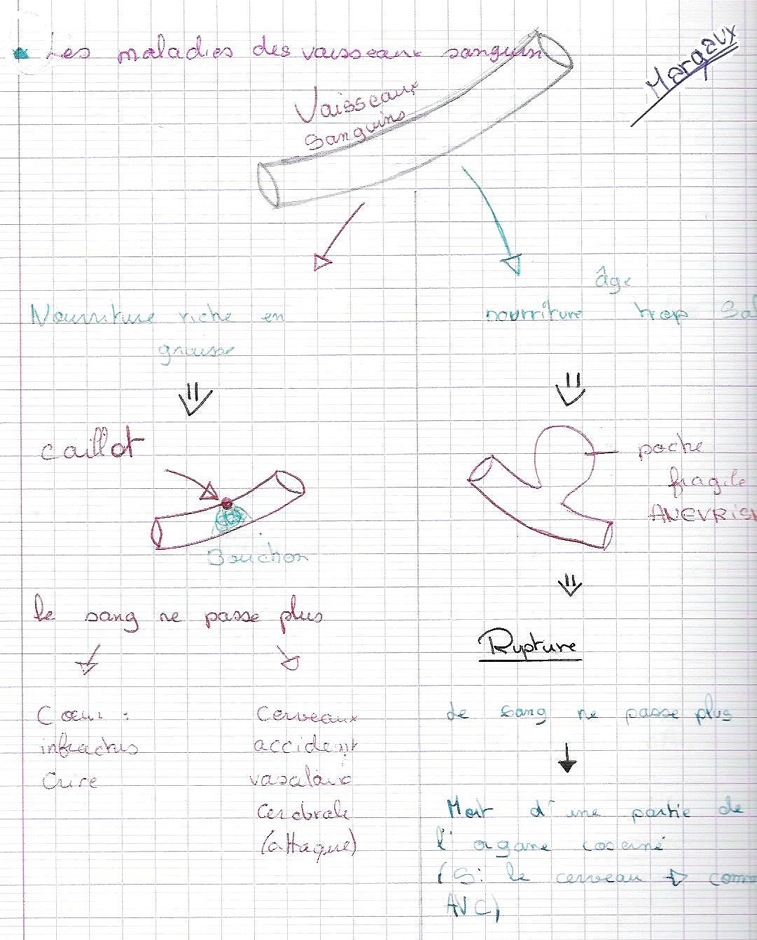 Les maladies des vaisseaux sanguin
Margaux
Vaisseaux
sanguins
Nourriture riche en
graisse
âge
nourriture trop sal
caillot
Bouchon
poche
fragile
ANEVRIS
le sang ne passe plus
Rupture
Cœur :
infractus
Cerveaux
accident
vasculaire
cerebrale
(attaque)
le sang ne passe plus
Mort d'une partie de
l'organe coserné
(Si le cerveau → comm
AVC)